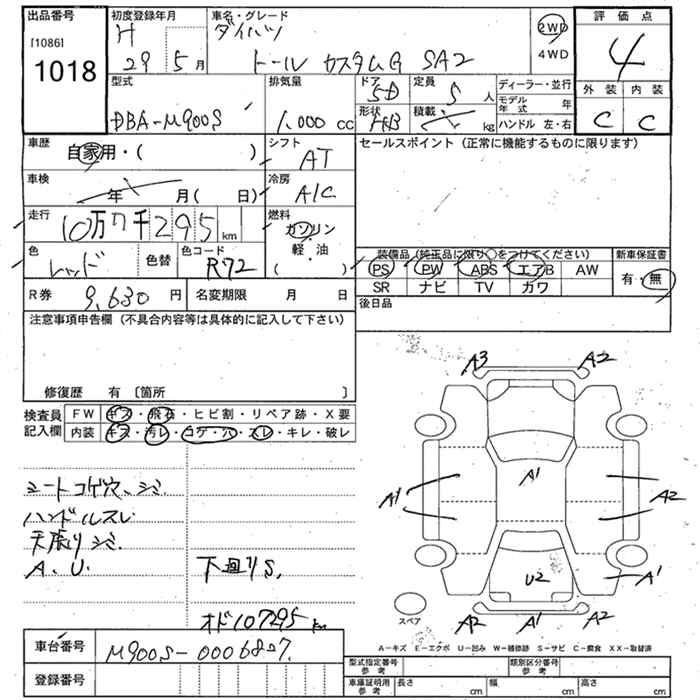 出品番号
[1086]
1018
初度登録年月
H
29 5月
車名・グレード
ダイハツ
トール カスタムG SA2
2WD
4WD
評価点
4
外装 内装
C C
型式
DBA-M900S
排気量
1,000 cc
ドア
5D
定員
5 人
形状
HB
積載
kg
ディーラー・並行
モデル年式 年
ハンドル 左・右
車歴
自家用・( )
シフト
AT
セールスポイント (正常に機能するものに限ります)
車検
年 月( 日)
冷房
A/C
走行
10万7千295 km
燃料
ガソリン
軽・油
( )
色
レッド
色替
色コード
R72
装備品 (純正品に限り○をつけてください)
新車保証書
PS PW ABS エアB AW
有・無
SR ナビ TV カワ
後日品
R券 9,630 円
名変期限 月 日
注意事項申告欄 (不具合内容等は具体的に記入して下さい)
修復歴 有 〔箇所 〕
検査員記入欄
FW キズ・飛石・ヒビ割・リペア跡・X要
内装 キズ・汚レ・コゲ・穴・スレ・キレ・破レ
シートコゲ穴、シミ.
ハンドルスレ
天張りシミ.
A.U.
下廻りS.
オド107295 km
A3 A2
A1
A1 A2
U2 A1
A2 A1 A2
スペア
A-キズ E-エクボ U-凹み W-補修跡 S-サビ C-腐食 XX-取替済
車台番号 M900S-0006827.
登録番号
型式指定番号 参考
類別区分番号 参考
車庫証明用 参考
長さ cm 幅 cm 高さ cm